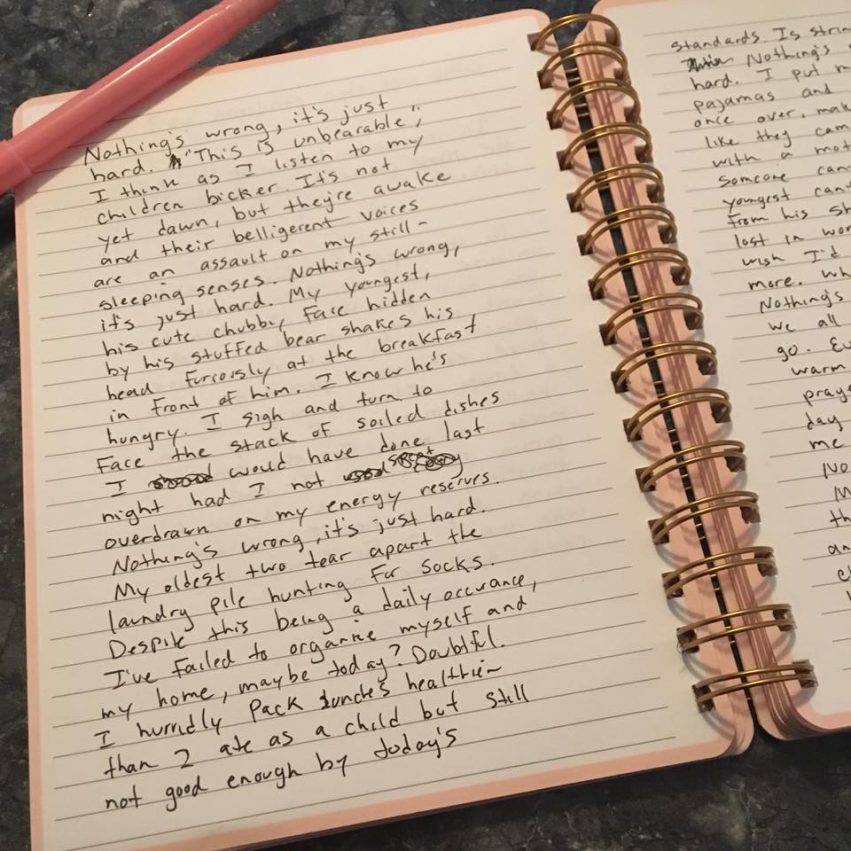 Nothing's wrong, it's just
hard. "This is unbearable",
I think as I listen to my
children bicker. It's not
yet dawn, but they're awake
and their belligerent voices
are an assault on my still-
sleeping senses. Nothing's wrong,
it's just hard. My youngest,
his cute chubby face hidden
by his stuffed bear shakes his
head furiously at the breakfast
in front of him. I know he's
hungry. I sigh and turn to
face the stack of soiled dishes
I would have done last
night had I not
overdrawn on my energy reserves.
Nothing's wrong, it's just hard.
My oldest two tear apart the
laundry pile hunting for socks.
Despite this being a daily occurance,
I've failed to organize myself and
my home, maybe today? Doubtful.
I hurridly pack lunches healthier
than I ate as a child but still
not good enough by today's
standards. Is strin
Nothing's
hard. I put m
pajamas and
once over, mak
like they cam
with a mot
someone can
youngest can
from his sh
lost in wor
wish I'd
more. Wh
Nothing's
we all
go. Ev
warm
praye
day
me
No
M
th
an